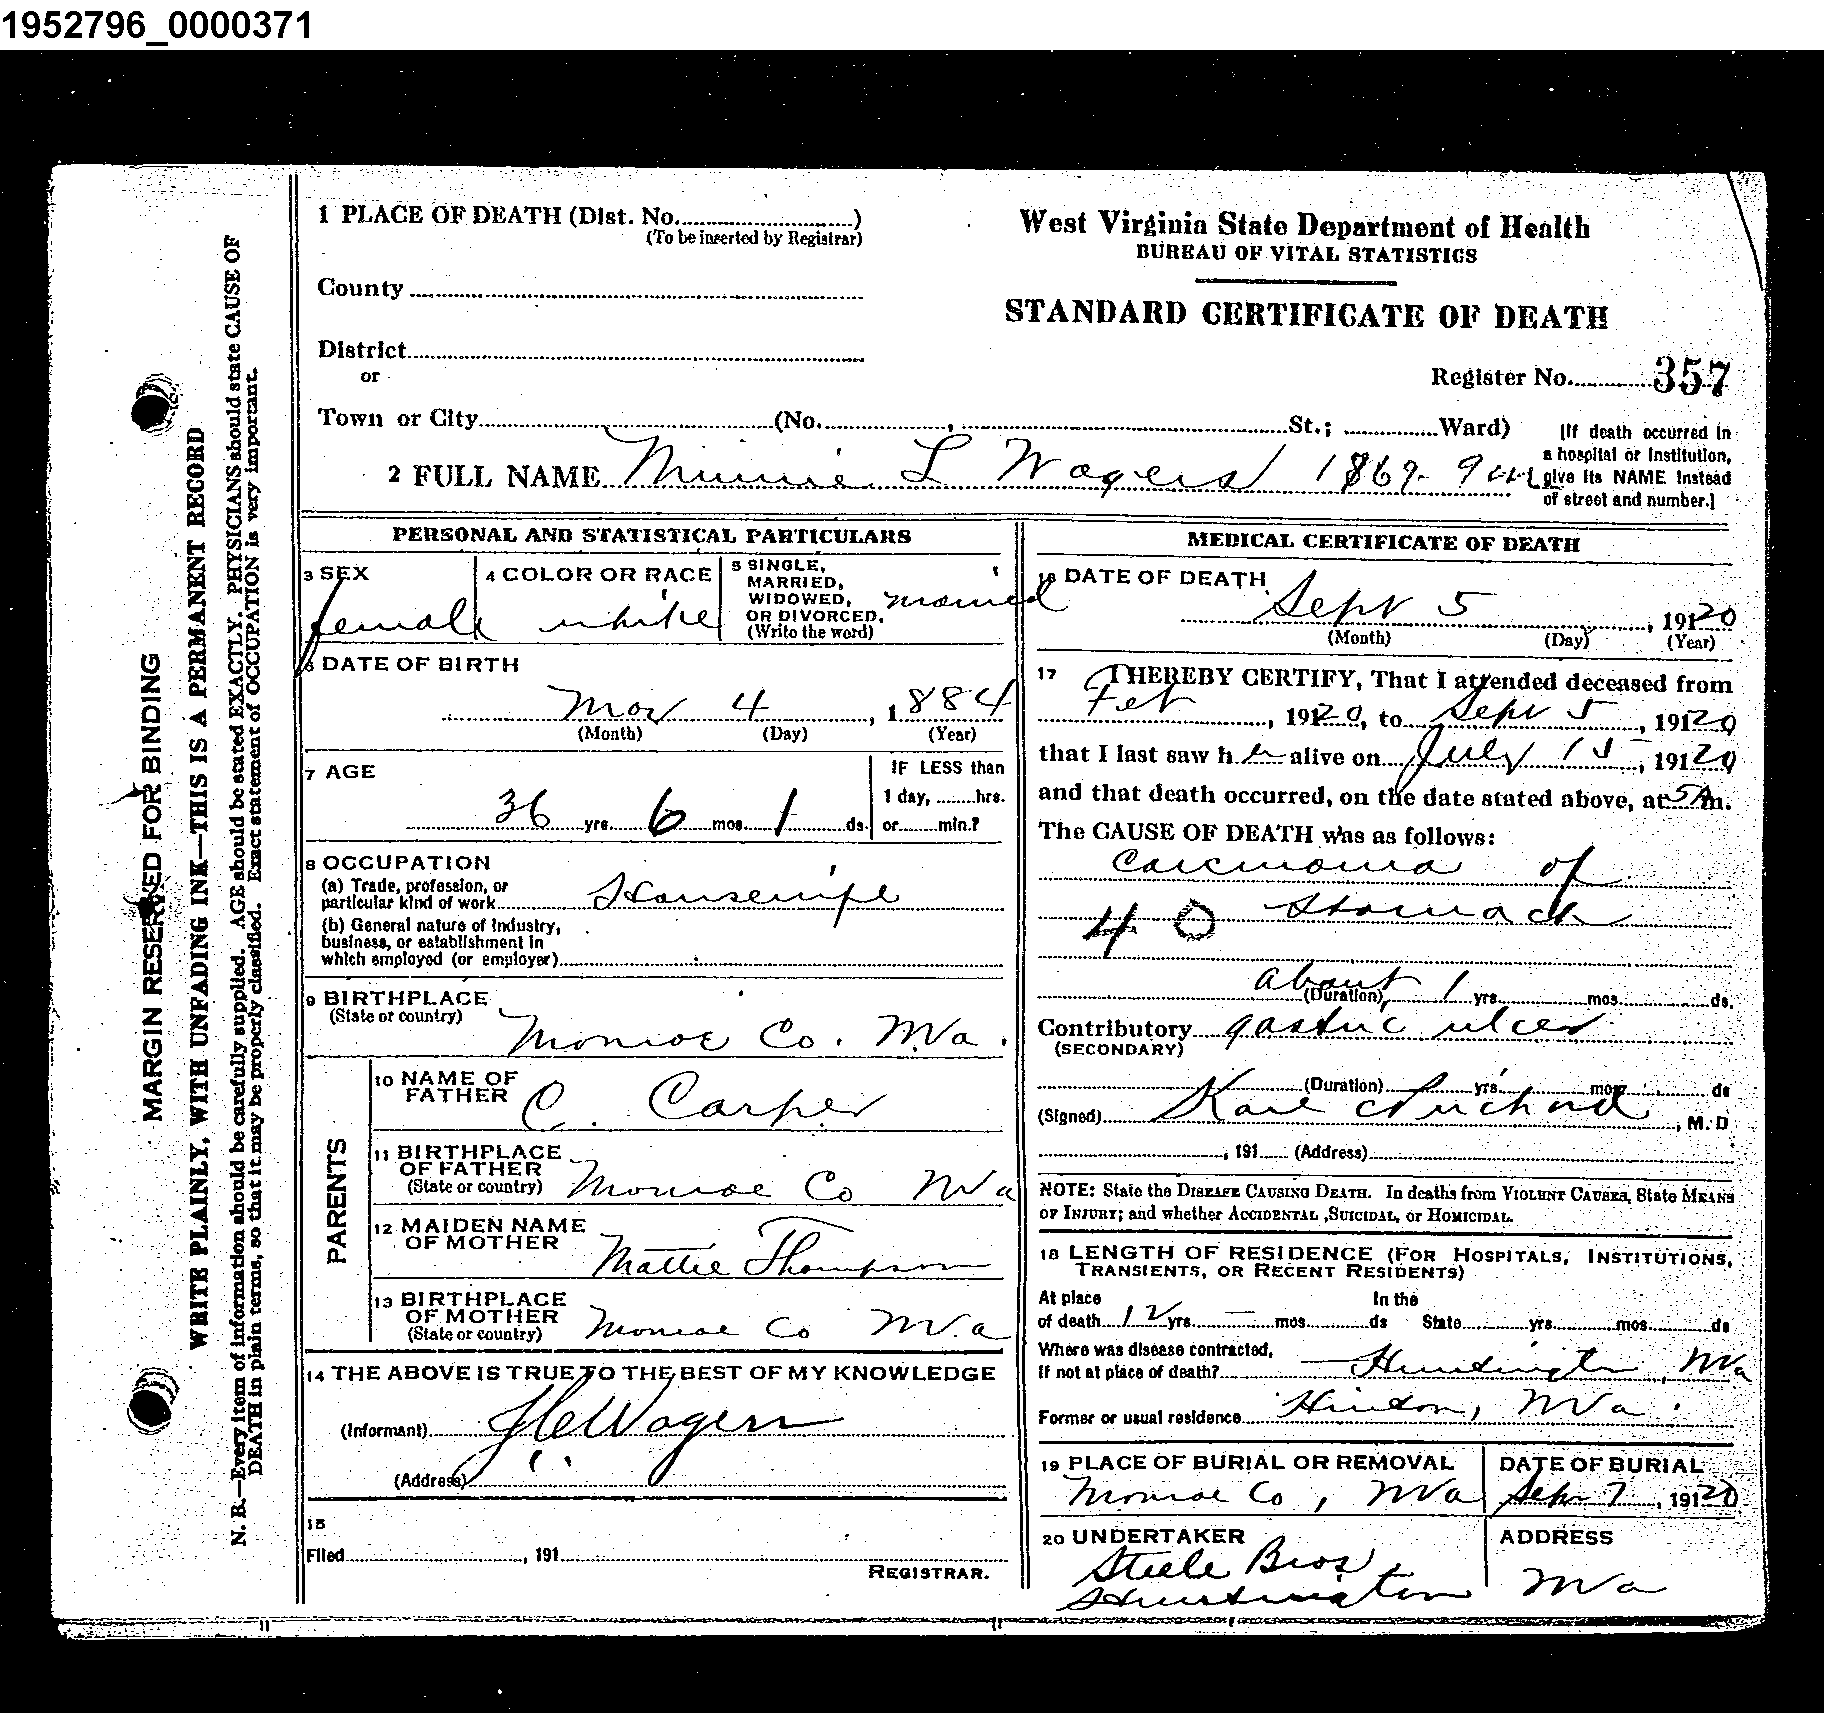 1952796_0000371
1 PLACE OF DEATH (Dist. No.....................)
(To be inserted by Registrar)
County
District
or
Town or City (No. , St.; Ward)
[If death occurred in
a hospital or institution,
give its NAME instead
of street and number.]
West Virginia State Department of Health
BUREAU OF VITAL STATISTICS
STANDARD CERTIFICATE OF DEATH
Register No. 357
2 FULL NAME Minnie L Wagers 1869-9
PERSONAL AND STATISTICAL PARTICULARS
3 SEX
female
4 COLOR OR RACE
white
5 SINGLE,
MARRIED,
WIDOWED,
OR DIVORCED,
(Write the word)
married
6 DATE OF BIRTH
Mar 4, 1884
(Month) (Day) (Year)
7 AGE
36 yrs. 6 mos. 1 ds.
IF LESS than
1 day, ........hrs.
or........min.?
8 OCCUPATION
(a) Trade, profession, or
particular kind of work Housewife
(b) General nature of Industry,
business, or establishment in
which employed (or employer)
9 BIRTHPLACE
(State or country)
Monroe Co. W.Va.
PARENTS
10 NAME OF
FATHER
C. Carper
11 BIRTHPLACE
OF FATHER
(State or country)
Monroe Co WVa
12 MAIDEN NAME
OF MOTHER
Mattie Thompson
13 BIRTHPLACE
OF MOTHER
(State or country)
Monroe Co W.Va
14 THE ABOVE IS TRUE TO THE BEST OF MY KNOWLEDGE
(Informant) Wagers
(Address)
15
Filed , 191
REGISTRAR.
MEDICAL CERTIFICATE OF DEATH
16 DATE OF DEATH
Sept 5, 19120
(Month) (Day) (Year)
17 I HEREBY CERTIFY, That I attended deceased from
Feb, 19120, to Sept 5, 19120
that I last saw her alive on July 15, 19120
and that death occurred, on the date stated above, at 5 A m.
The CAUSE OF DEATH was as follows:
Carcinoma of
40 Stomach
about (Duration) 1 yrs. mos. ds.
Contributory gastric ulcer
(SECONDARY)
(Duration) yrs. mos. ds
(Signed) , M. D
, 191 (Address)
NOTE: State the DISEASE CAUSING DEATH. In deaths from VIOLENT CAUSES, State MEANS
OF INJURY; and whether ACCIDENTAL, SUICIDAL, or HOMICIDAL.
18 LENGTH OF RESIDENCE (FOR HOSPITALS, INSTITUTIONS,
TRANSIENTS, OR RECENT RESIDENTS)
At place In the
of death 12 yrs. — mos. ds State yrs. mos. ds
Where was disease contracted,
if not at place of death? Huntington, WVa
Former or usual residence Hinton, WVa.
19 PLACE OF BURIAL OR REMOVAL
Monroe Co, WVa
DATE OF BURIAL
Sept 7, 19120
20 UNDERTAKER
Steele Bros
Huntington
ADDRESS
WVa
MARGIN RESERVED FOR BINDING
WRITE PLAINLY, WITH UNFADING INK—THIS IS A PERMANENT RECORD
N. B.—Every item of information should be carefully supplied. AGE should be stated EXACTLY. PHYSICIANS should state CAUSE OF
DEATH in plain terms, so that it may be properly classified. Exact statement of OCCUPATION is very important.